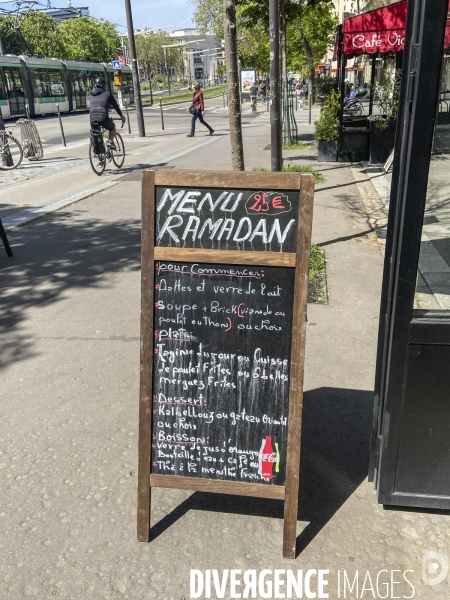 Café Vic
MENU 25€
RAMADAN
pour commencer:
Dattes et verre de lait
soupe + Brick(viande ou
poulet ou thon) au choix
plat:
Tagine du jour ou Cuisse
de poulet Frites ou
merguez Frites
Dessert:
Kalbellouz ou gateau oriental
au choix
Boisson:
verre de jus d'orange
Bouteille d'eau + café ou
Thé à la menthe Fraîche
DIVERGENCE IMAGES